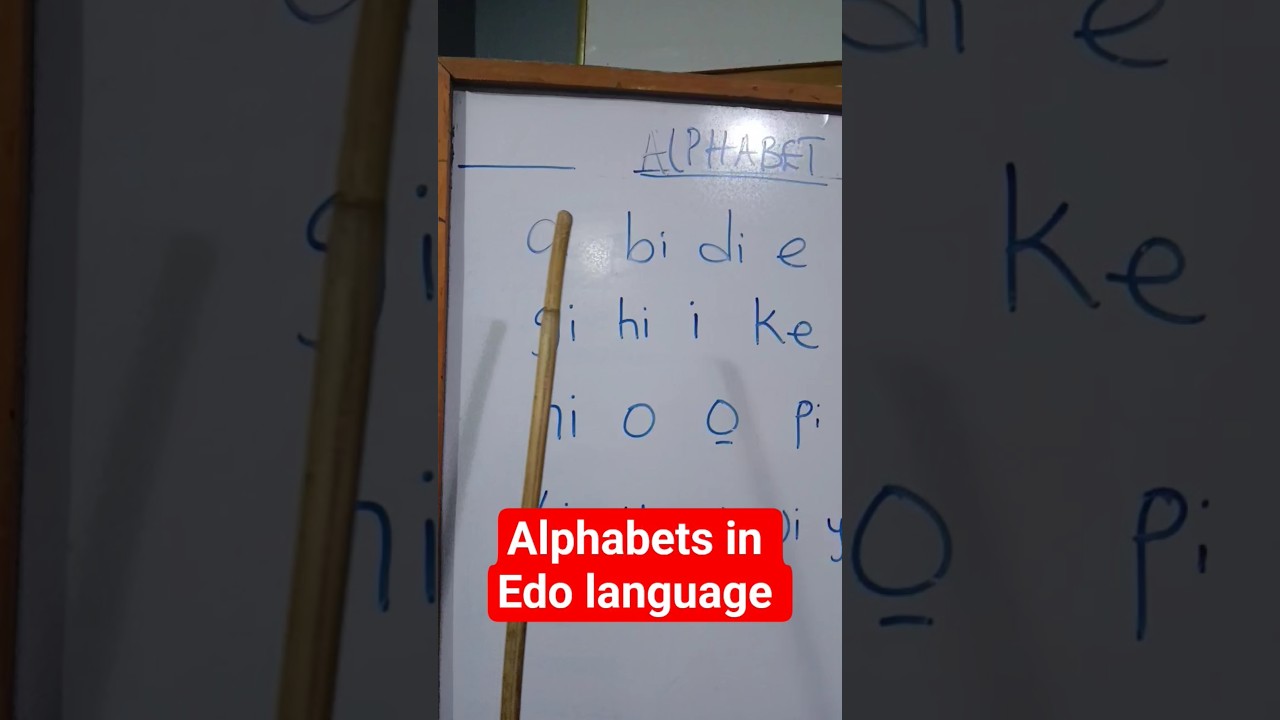 ALPHABET
a bi di e
gi hi i ke
ni o ọ pi
Alphabets in
Edo language